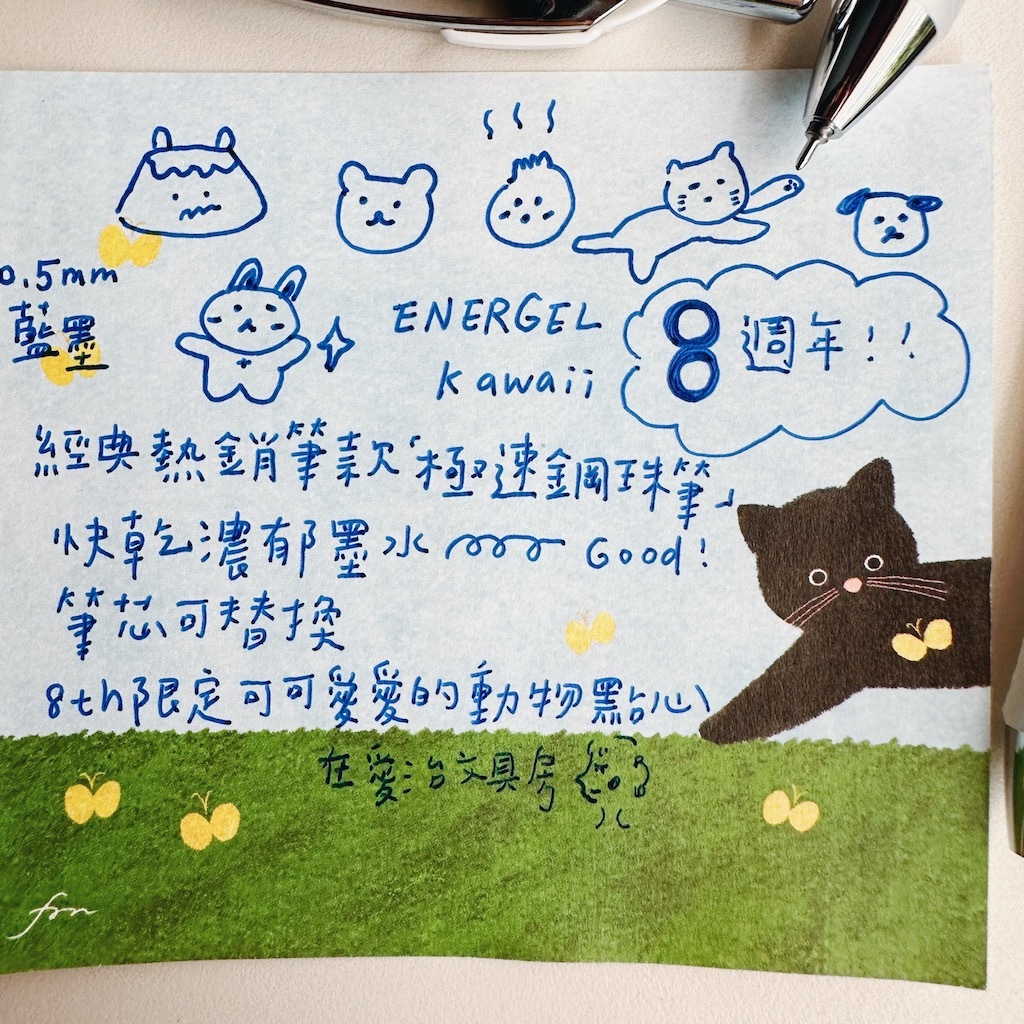 0.5mm
藍墨
ENERGEL
kawaii
8週年!!
經典熱銷筆款「極速鋼珠筆」
快乾濃郁墨水 Good!
筆芯可替換
8th限定可可愛愛的動物點心
在愛治文具房